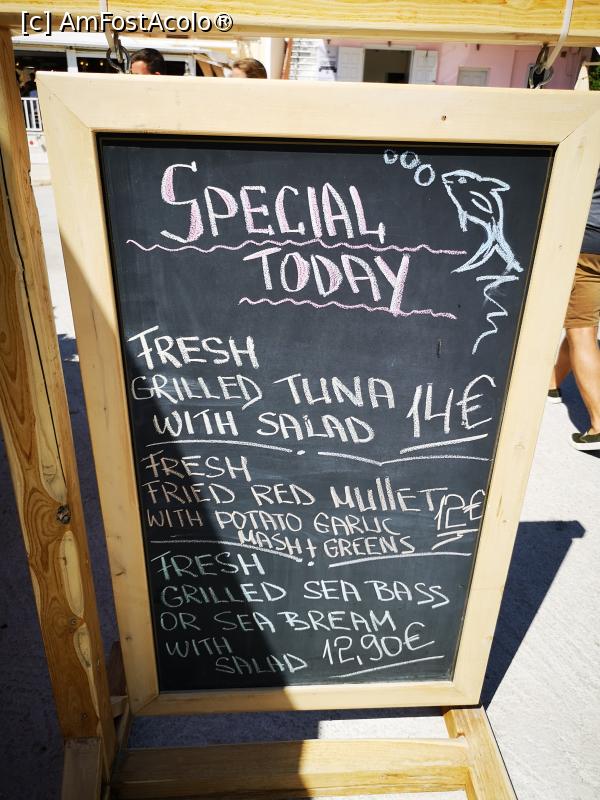 [c] AmFostAcolo®
SPECIAL
TODAY
FRESH
GRILLED TUNA
WITH SALAD 14€
FRESH
FRIED RED MULLET
WITH POTATO GARLIC 12€
MASH + GREENS
FRESH
GRILLED SEA BASS
OR SEA BREAM
WITH
SALAD 12,90€